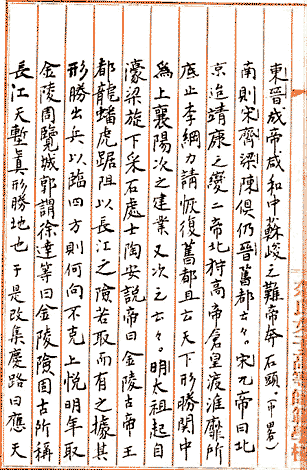 東晉成帝咸和中蘇峻之難帝奔石頭。(中畧)
南則宋齊梁陳俱仍晉舊都云々。宋元帝曰北
京迨靖康之變二帝北狩高帝倉皇渡淮靡所
底止李綱力請恢復舊都且云天下形勝関中
為上襄陽次之建業又次之云々。明太祖起自
濠梁旋下采石處士陶安說帝曰金陵古帝王
都龍蟠虎踞阻以長江之險若取而有之據其
形勝出兵以臨四方則何向不克上悅明年取
金陵周覽城郭謂徐達等曰金陵險固古所稱
長江天塹眞形勝地也于是改集慶路曰應天